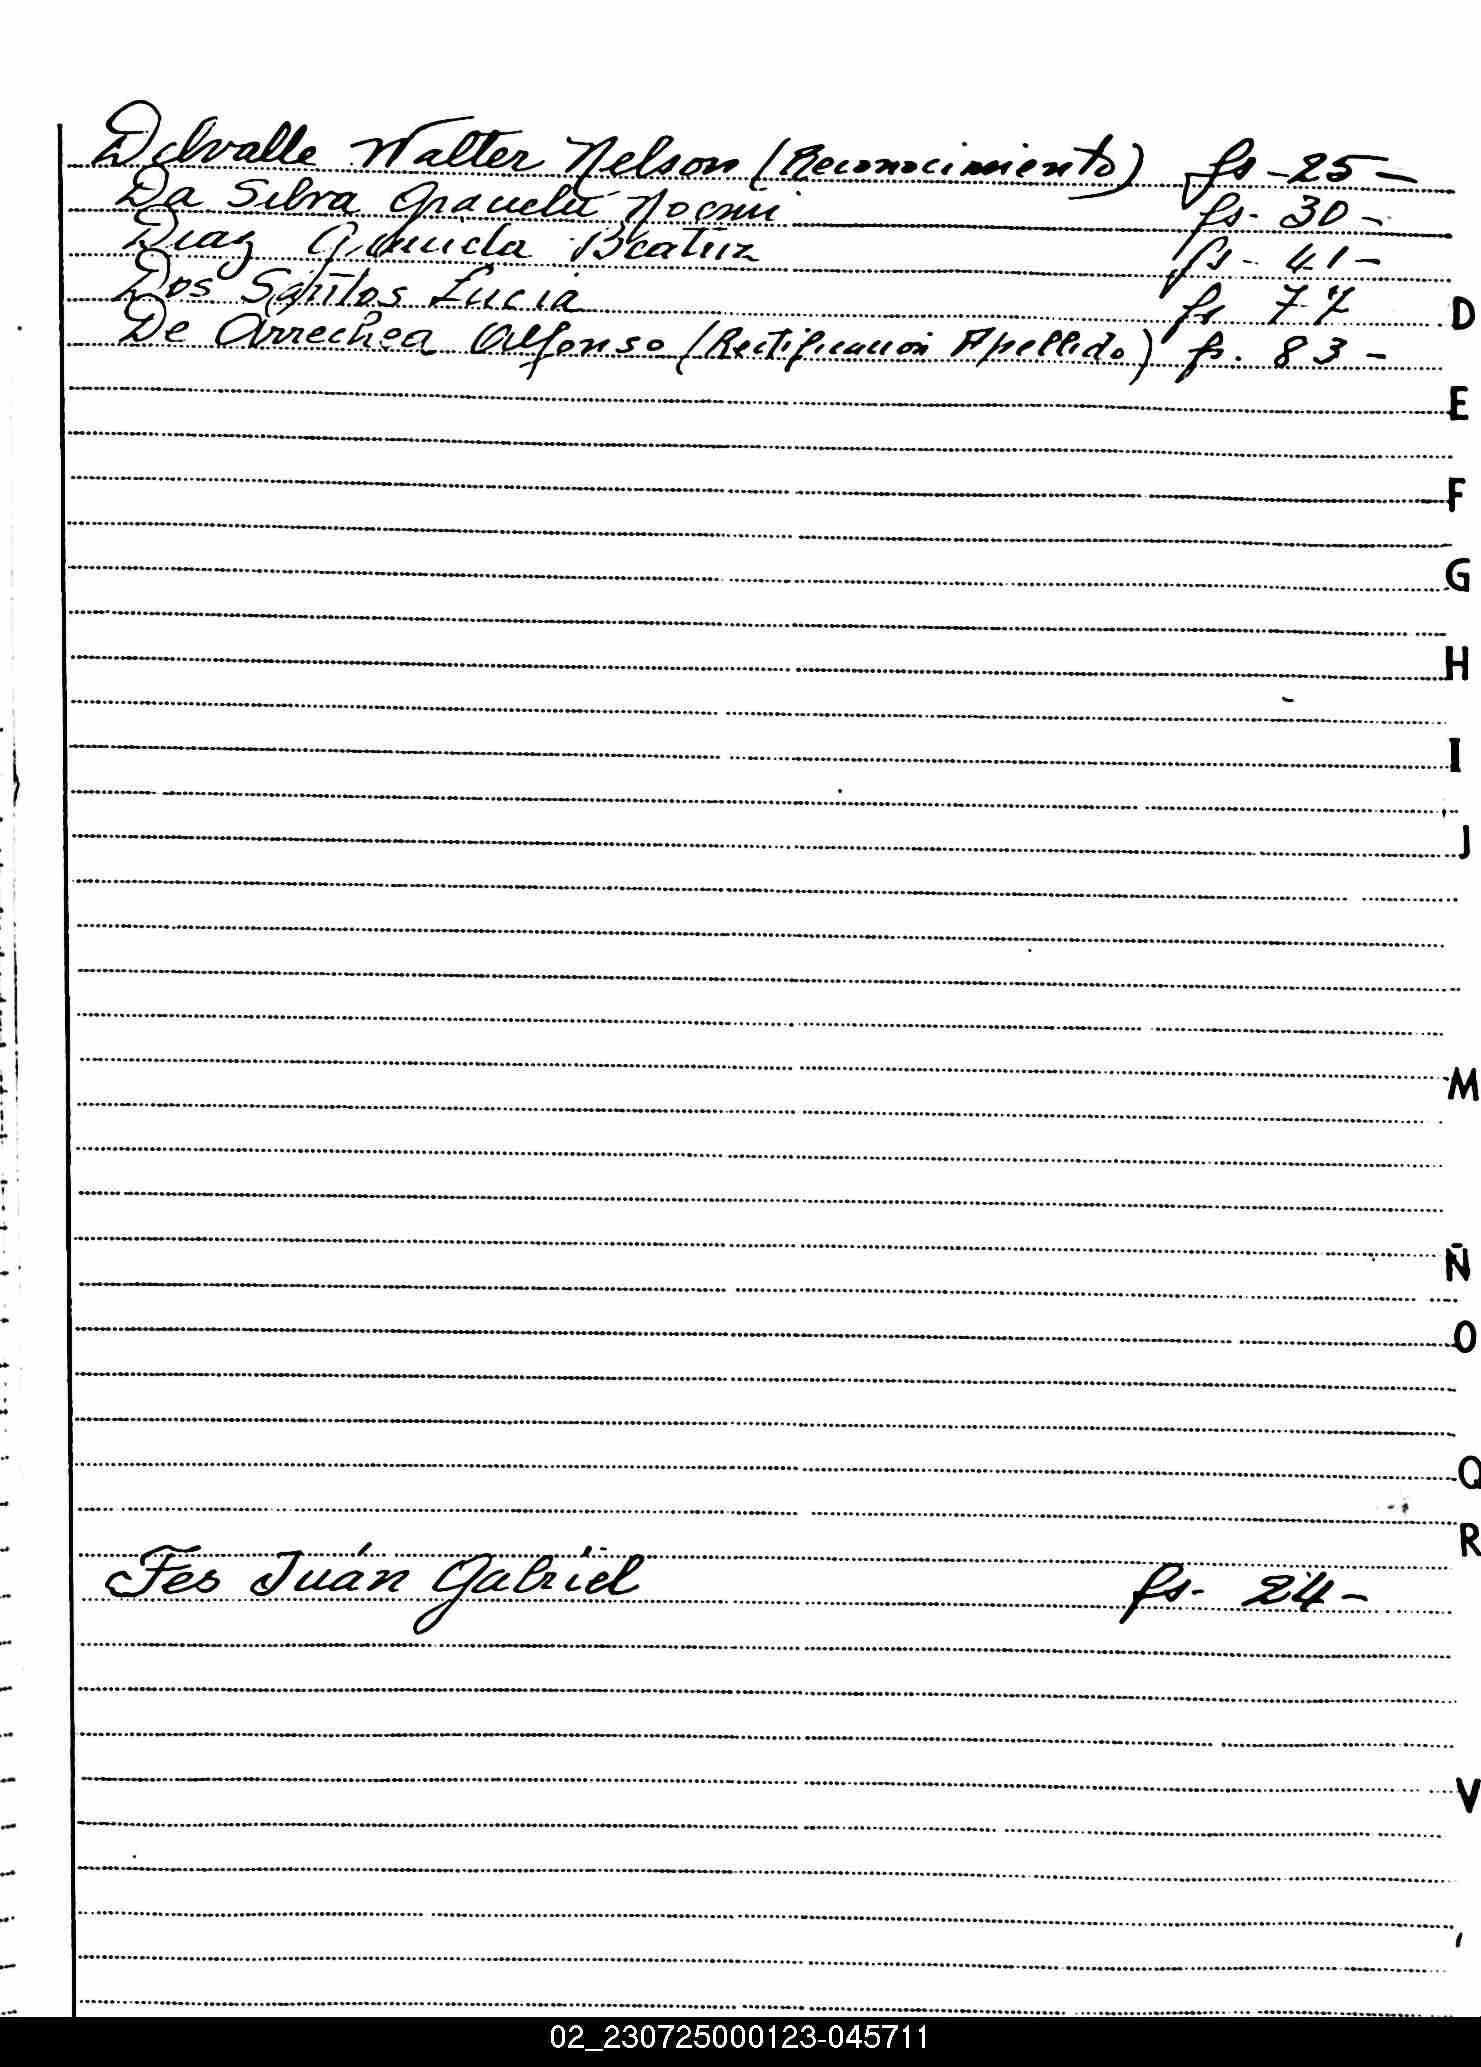 Delvalle Walter Nelson (Reconocimiento) fs - 25 -
Da Silva Graciela Noemi fs - 30 -
Diaz Beatriz fs - 41 -
Dos Santos Lucia fs 77
D
De Arrechea Alfonso (Rectificacion Apellido) fs. 83 -
E
F
G
H
I
J
M
Ñ
O
Q
R
Fes Juán Gabriel fs - 24 -
V
02_230725000123-045711